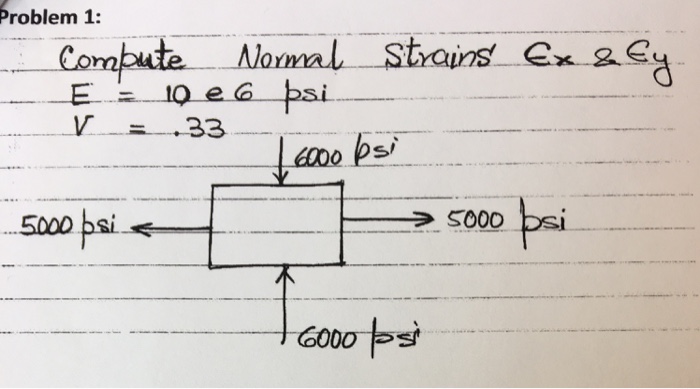 Problem 1:
Compute Normal Strains Ex & Ey
E = 10 e 6 psi
V = .33
6000 psi
5000 psi
5000 psi
6000 psi